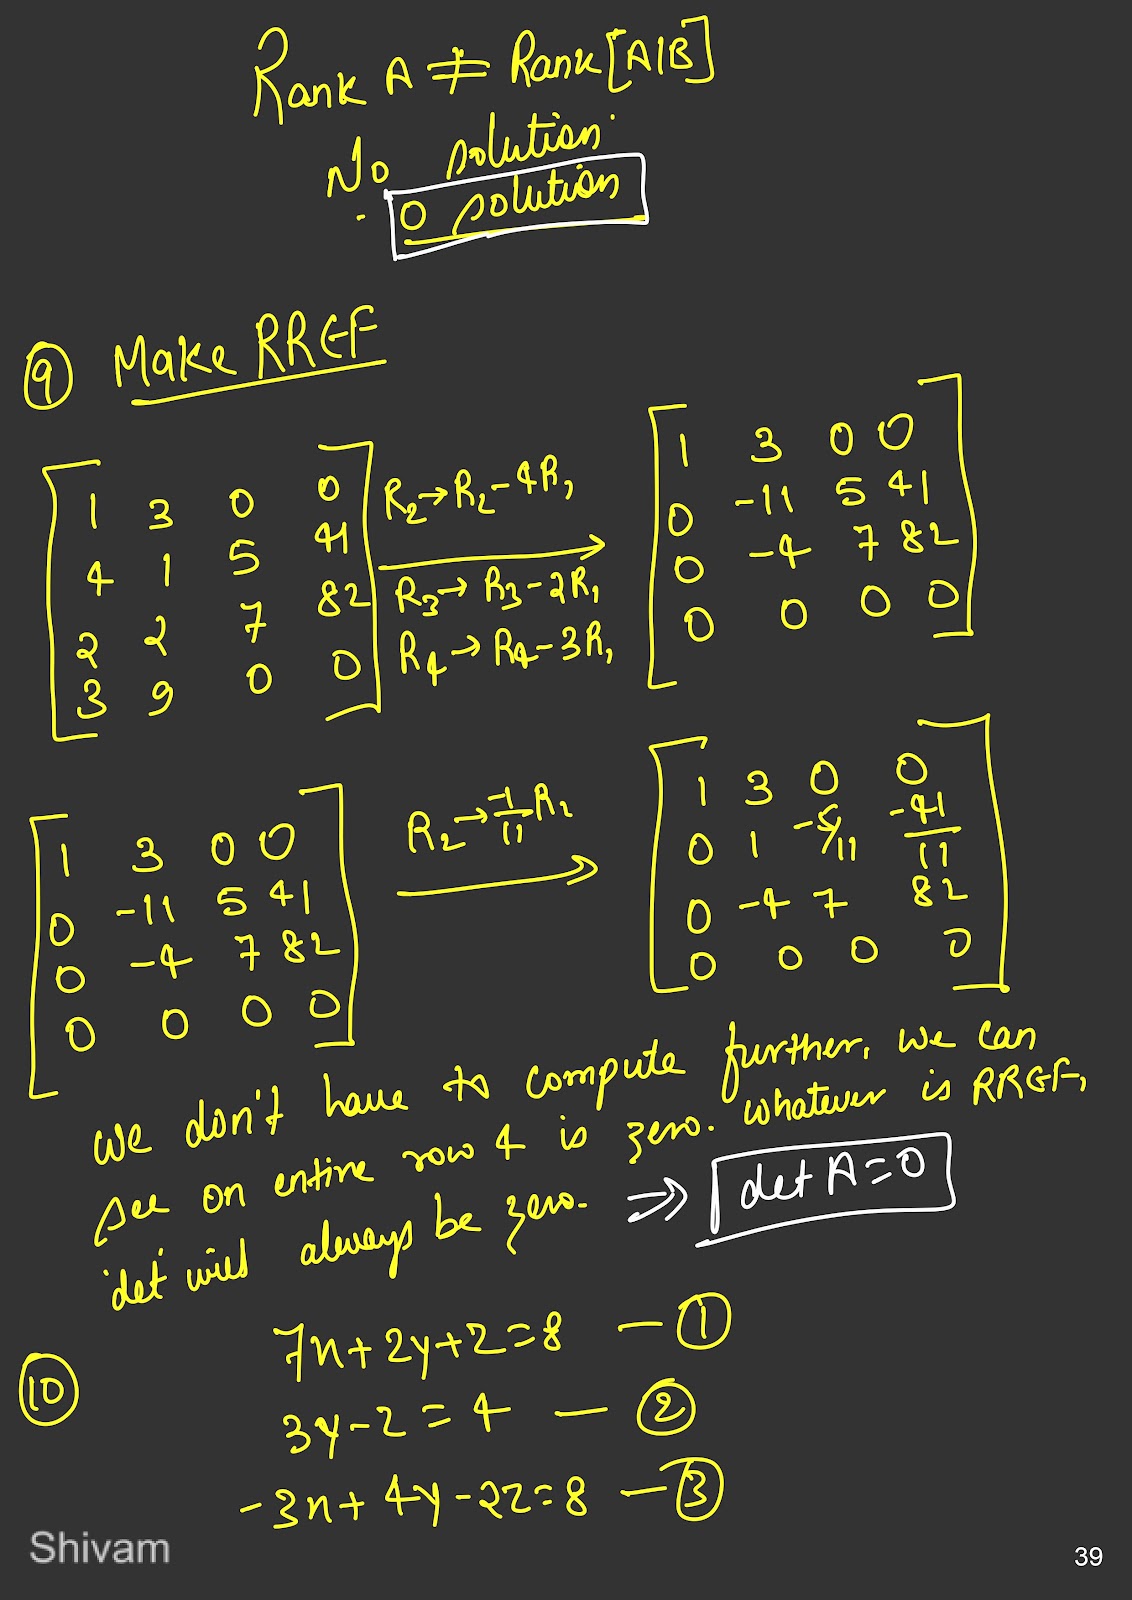 Rank A ≠ Rank [A|B]
No solution.
0 solution
⑨ Make RREF
1 3 0 0
4 1 5 41
2 2 7 82
3 9 0 0
R₂→R₂-4R₁
R₃→R₃-2R₁
R₄→R₄-3R₁
1 3 0 0
0 -11 5 41
0 -4 7 82
0 0 0 0
1 3 0 0
0 -11 5 41
0 -4 7 82
0 0 0 0
R₂→-1/11 R₂
1 3 0 0
0 1 -5/11 -41/11
0 -4 7 82
0 0 0 0
we don't have to compute further, we can
see on entire row 4 is zero. whatever is RREF,
'det' will always be zero. ⇒ det A=0
⑩
7x+2y+z=8 — ①
3y-z=4 — ②
-3x+4y-2z=8 — ③
Shivam
39